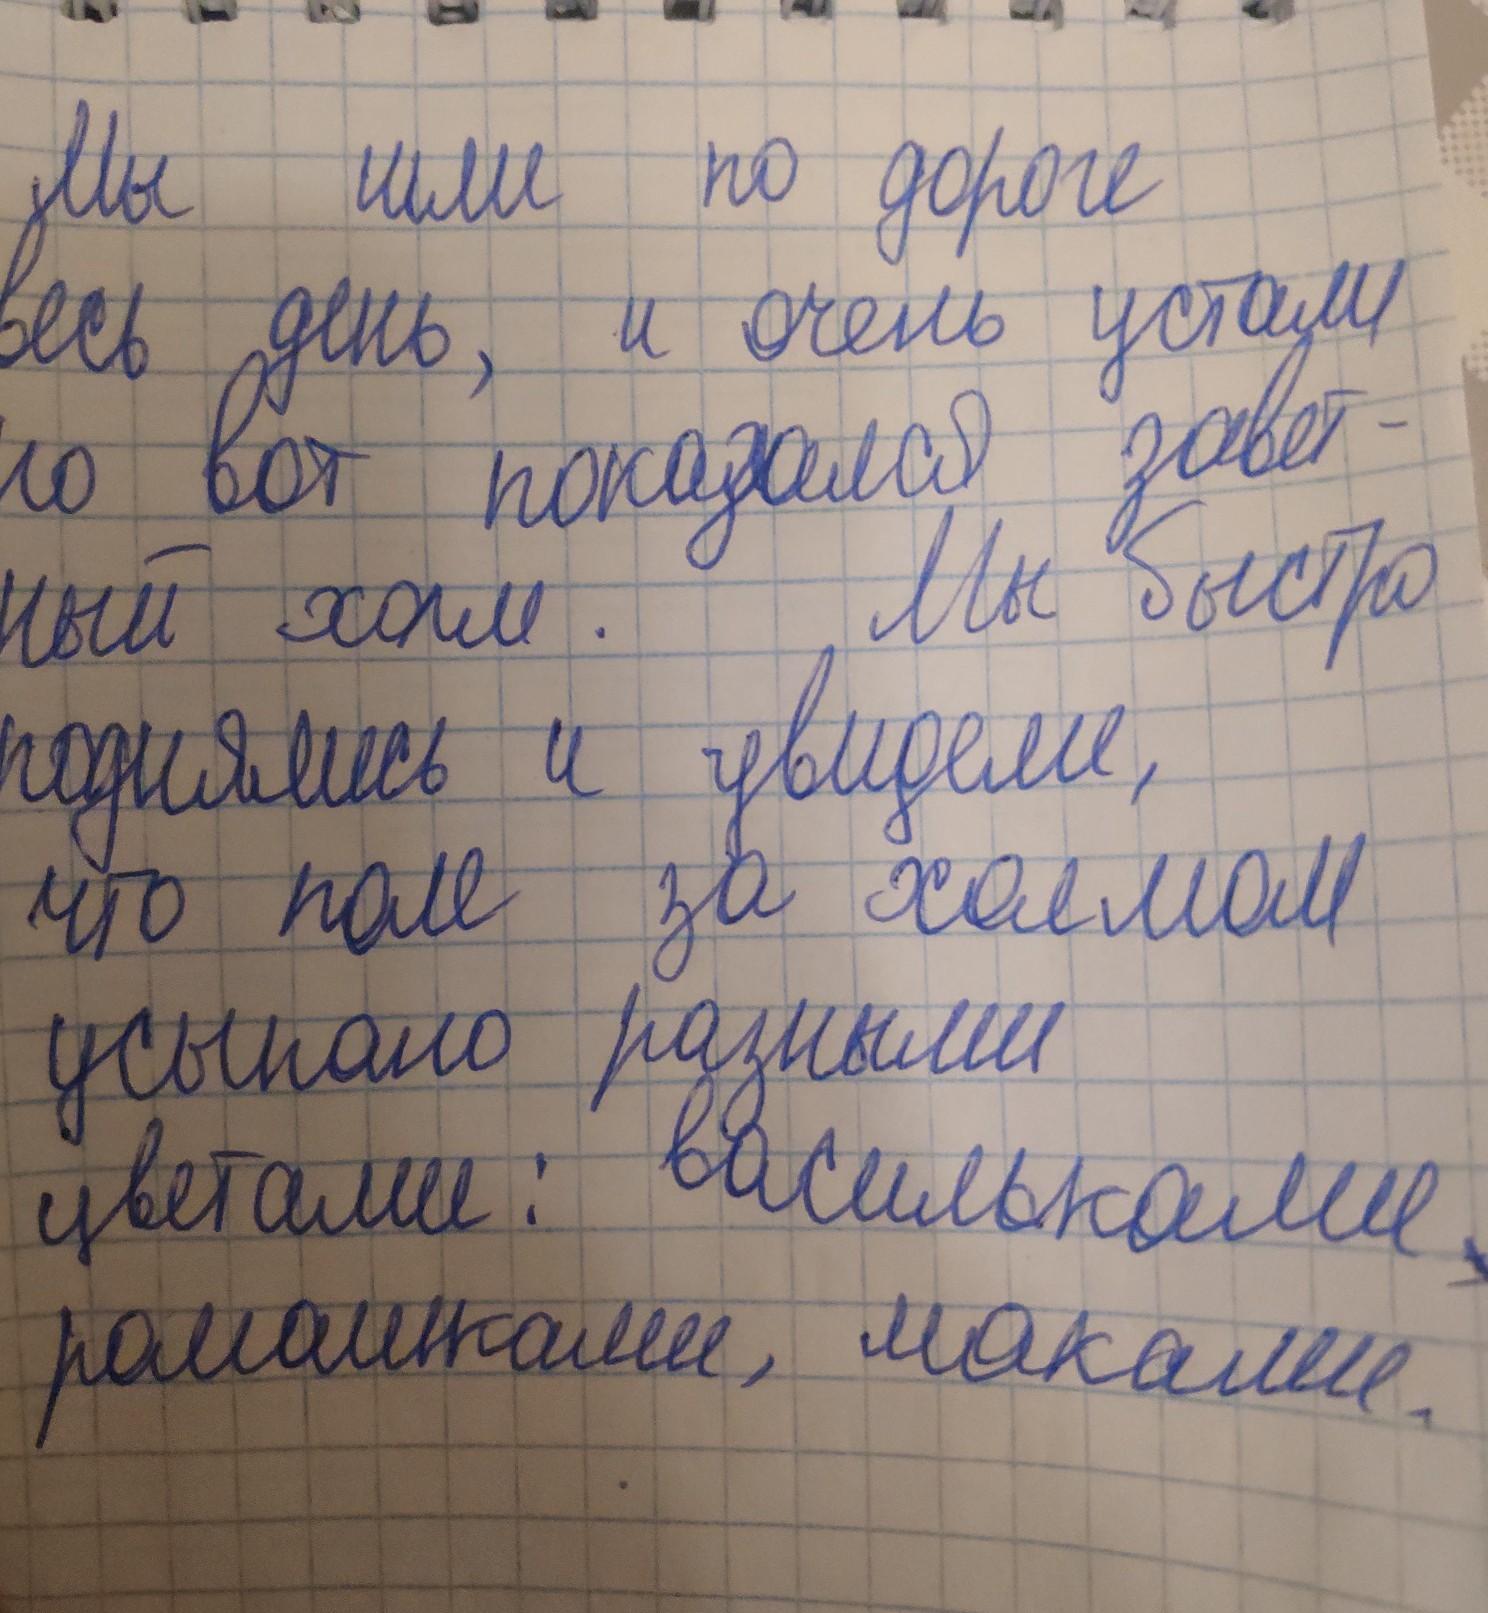 Мы шли по дороге
весь день, и очень устали
но вот показался завет-
ный холм. Мы быстро
поднялись и увидели,
что поле за холмом
усыпано разными
цветами: васильками,
ромашками, маками.